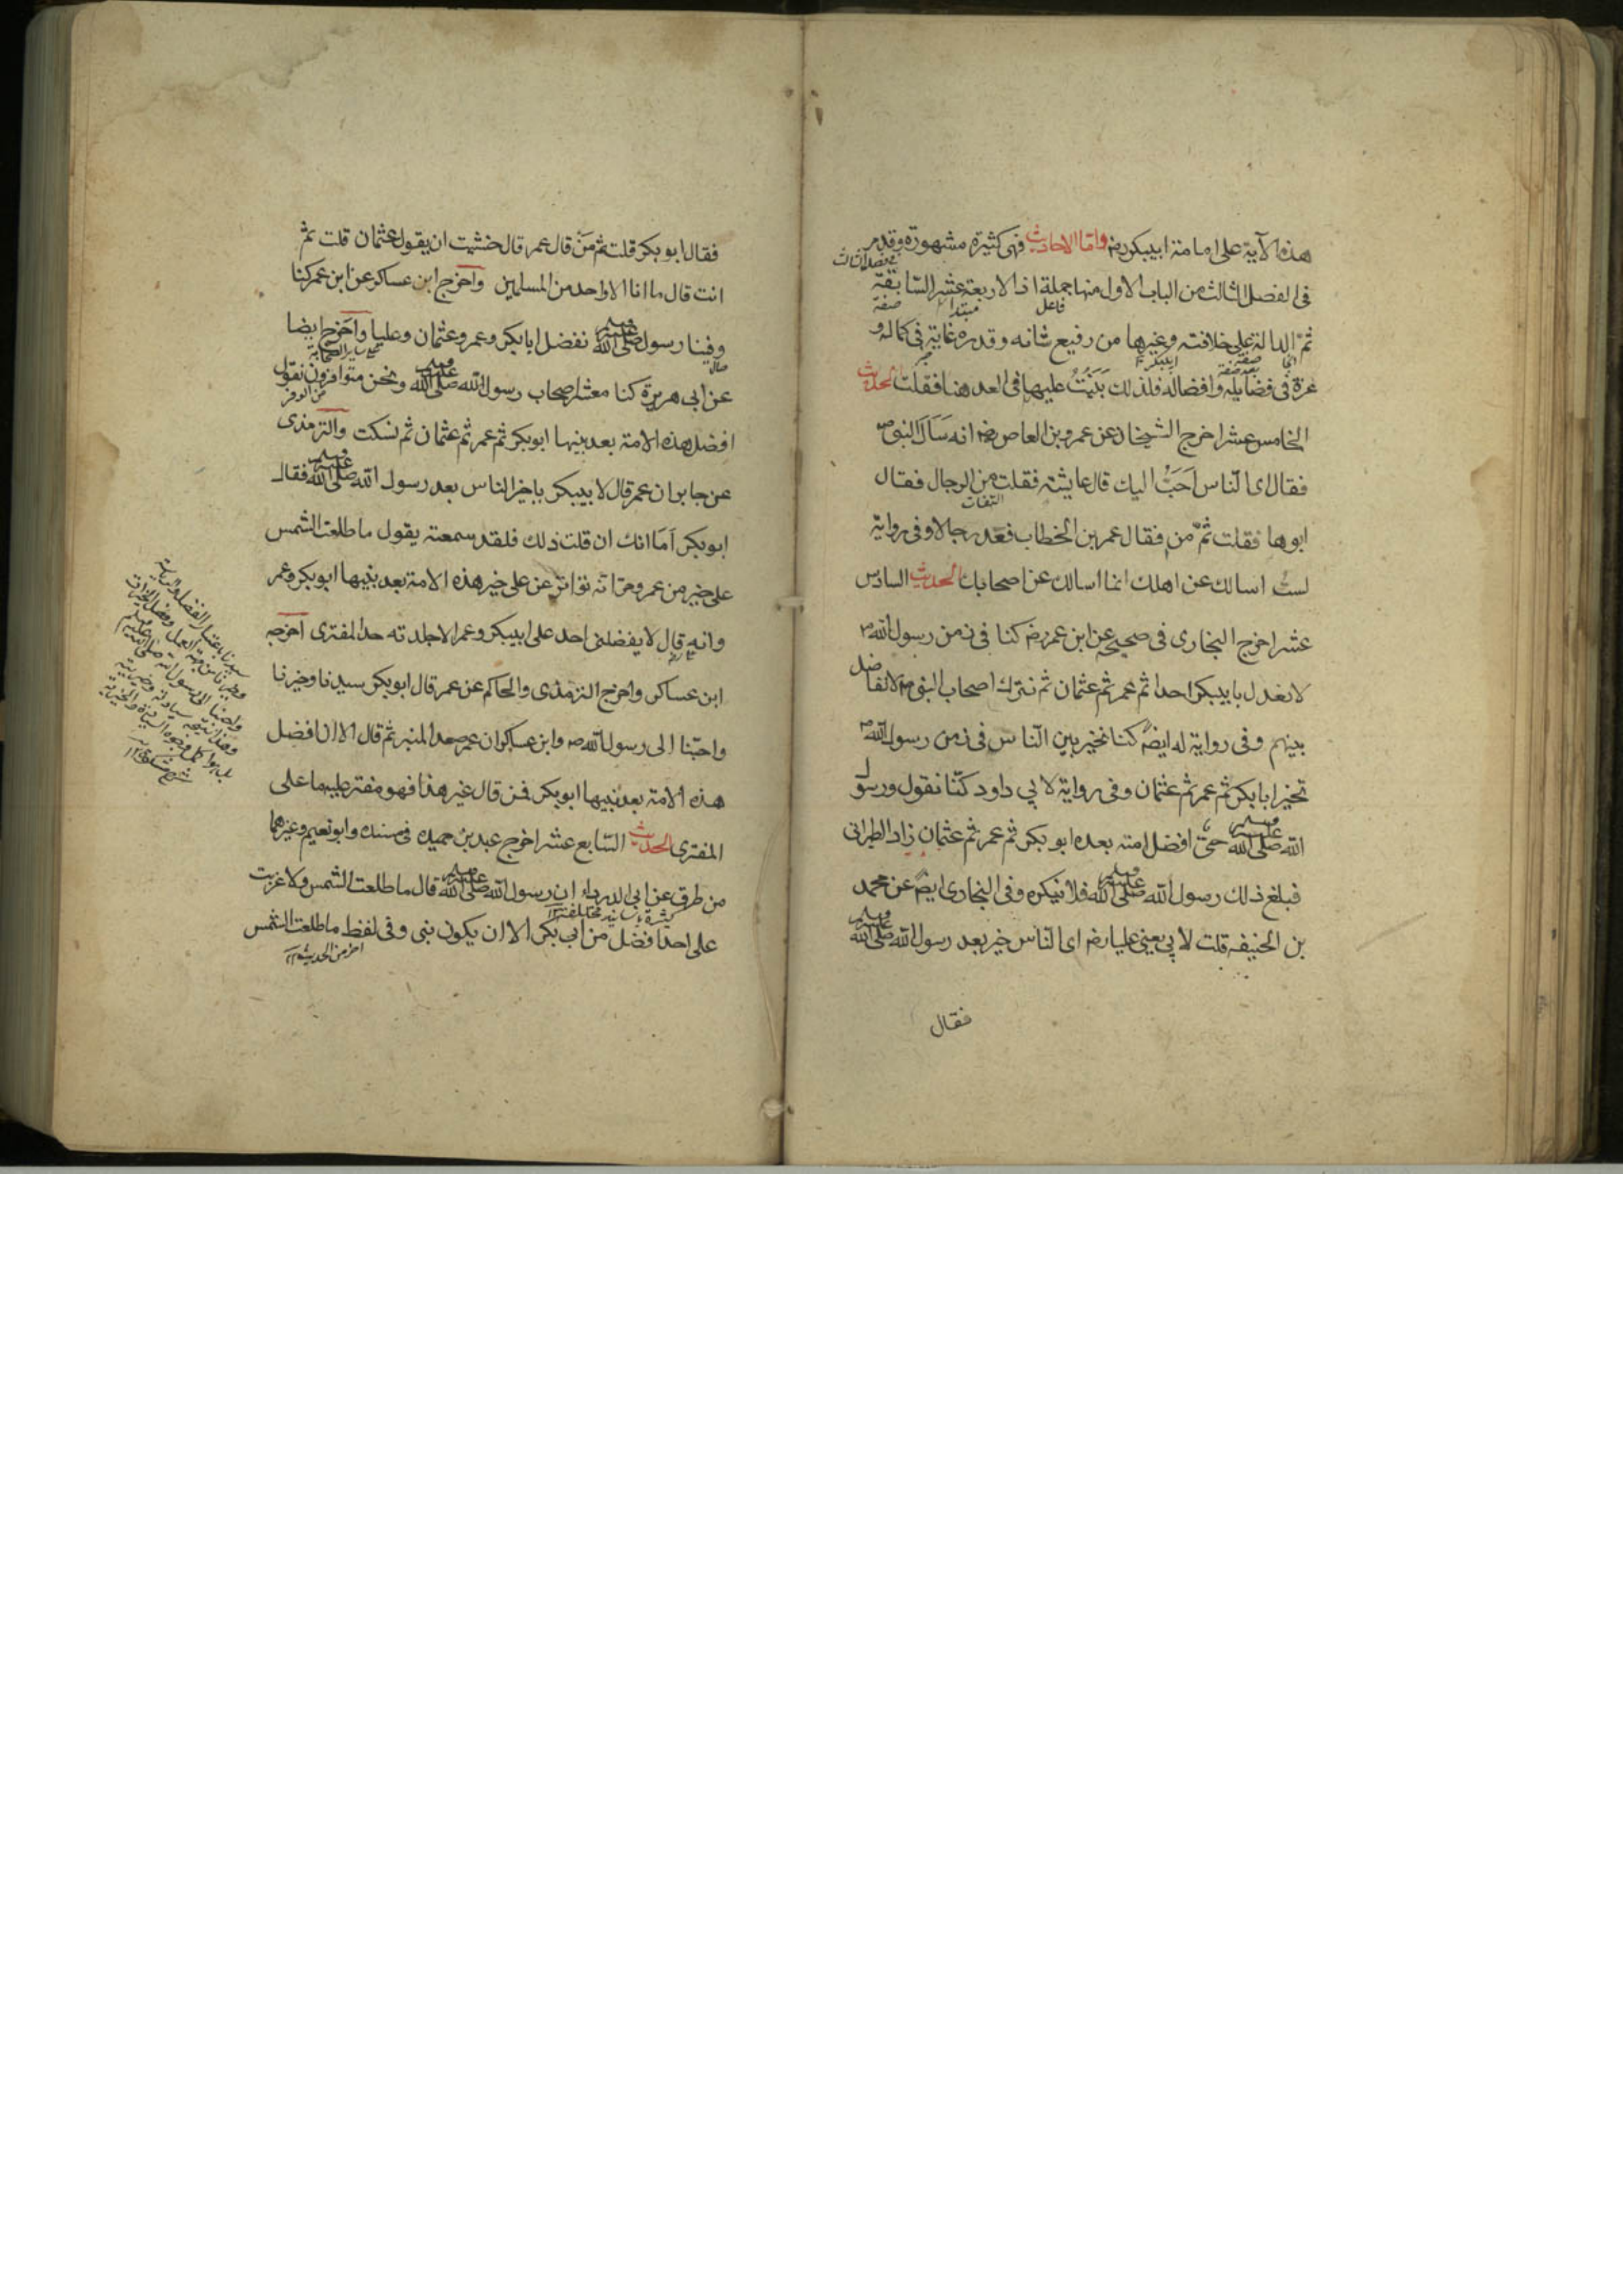 هذه الآية على امامة ابيبكر رضه واما الاحاديث فهى كثيرة مشهورة وقد مر
فى الفصل الثالث من الباب الاول منها جملة اذ الاربعة عشر السابقة
ثمّ الدالة على خلافته وغيرها من رفيع شانه وقدره غاية فى كماله و
غرة فى فضايله وافضاله فلذلك بَنَيْتُ عليها فى العد هنا فقلت الحديث
الخامس عشر اخرج الشيخان عن عمرو بن العاص رضه انه سَاَلَ النبى صم
فقال اى النّاس اَحَبُّ اليك قال عايشة فقلت من الرجال فقال
ابوها فقلت ثمّ من فقال عمر بن الخطاب فعّد رجالا وفى رواية
لستُ اسالك عن اهلك انما اسالك عن اصحابك الحديث السادس
عشر اخرج البخارى فى صحيحه عن ابن عمر رضه كنا فى زمن رسول الله صم
لا نعدل بابيبكر احدا ثم عمر ثم عثمان ثم نترك اصحاب النبى صم لا نفاضل
بينهم وفى رواية له ايضً كنا نخير بين النّاس فى زمن رسول الله صم
نخير ابا بكر ثم عمر ثم عثمان وفى رواية لابي داود كنّا نقول ورسول
الله صلى الله عليه وسلم حىّ افضل امته بعده ابو بكر ثم عمر ثم عثمان زاد الطبرانى
فبلغ ذلك رسول الله صلى الله عليه وسلم فلا ينكره وفى البخارى ايضً عن محمد
بن الحنيفه قلت لابي يعنى عليا رضه اى النّاس خير بعد رسول الله صلى الله عليه وسلم
فقال
فقال ابو بكر قلت ثم مَنْ قال عمر قال خشيت ان يقول عثمان قلت ثم
انت قال ما انا الا واحد من المسلمين واخرج ابن عساكر عن ابن عمر كنا
وفينا رسول الله صلى الله عليه وسلم نفضل ابا بكر وعمر وعثمان وعليا واخرج ايضا
عن ابى هريرة كنا معشر اصحاب رسول الله صلى الله عليه وسلم ونحن متوافرون نقول
افضل هذه الامة بعد نبيها ابو بكر ثم عمر ثم عثمان ثم نسكت والترمذى
عن جابر ان عمر قال لابيبكر يا خير الناس بعد رسول الله صلى الله عليه وسلم فقال
ابو بكر اَمَا انك ان قلت ذلك فلقد سمعته يقول ما طلعت الشمس
على خير من عمر ومر انّه تواتر عن على خير هذه الامة بعد نبيها ابو بكر وعمر
وانه قال لا يفضلنى احد على ابيبكر وعمر الا جلدته حد المفترى اخرجه
ابن عساكر واخرج الترمذى والحاكم عن عمر قال ابو بكر سيدنا وخيرنا
واحبّنا الى رسول الله صم وابن عساكر ان عمر صعد المنبر ثم قال الا ان افضل
هذه الامة بعد نبيها ابو بكر فمن قال غير هذا فهو مفتر عليه ما على
المفترى الحديث السّابع عشر اخرج عبد بن حميد فى مسنده وابو نعيم وغيرهما
من طرق عن ابي الدرداء ان رسول الله صلى الله عليه وسلم قال ما طلعت الشمس ولا غربت
على احد افضل من ابى بكر الا ان يكون نبى وفى لفظ ما طلعت الشمس